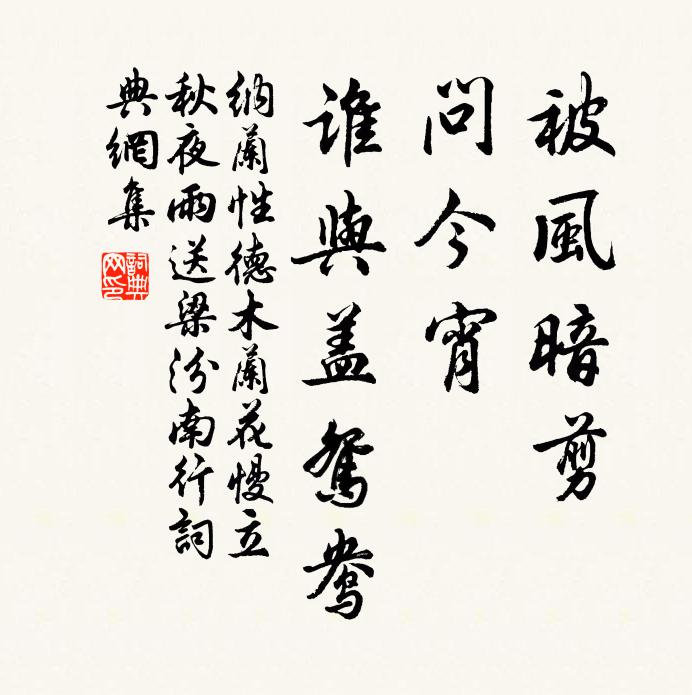 被風暗剪
問今宵
誰與盖鴛鴦
納蘭性德木蘭花慢立
秋夜雨送梁汾南行詞
典網集
詞典
网印